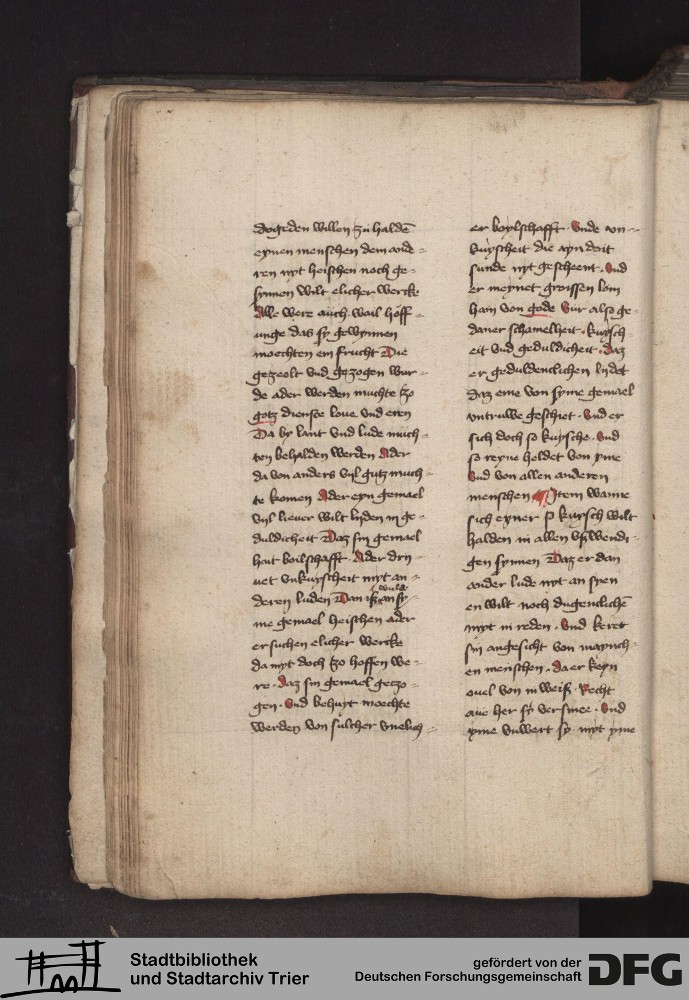 dogeden willen zu haldē
eynen menschen dem ande-
ren nyt heischen noch ge-
synnen wilt elicher wercke
Alle were auch wail hoff-
unge das sy gewynnen
moechten ein frucht Die
gezeolt vnd gezogen wur-
de ader werden muchte zo
gotz dienste loue vnd eren
Da by lant vnd lude much-
ten behalden werden Ader
da von anders vyl gutz much-
te komen Ader eyn gemael
vyl lieuer wilt lyden in ge-
duldicheit Daz sin gemael
hait boilschafft Ader dry-
uet vnkuyscheit myt an-
deren luden Dan iß wulde an sy-
me gemael heischen ader
ersuchen elicher wercke
da myt doch zo hoffen we-
re. daz sin gemael gezo-
gen. vnd behuyt moechte
werden von sulcher vnelich-
er boylschafft. Vnde vn-
kuyscheit die ayn doit
sunde nyt gescheent. Vnd
er meynet groissen loin
hain von gode Vur also ge-
daner schamelheit. kuysch-
eit vnd geduldicheit. daz
er geduldentlichen lydet
daz eme von syme gemael
vntruwe geschiet. Vnd er
sich doch so kuysche. Vnd
so reyne heldet von yme
Vnd von allen anderen
menschen Item wanne
sich eyner so kuysch wilt
halden in allen vßwendi-
gen synnen Daz er dan
ander lude nyt an spen
en wilt noch dugentlichē
myt in reden. Vnd keret
sin angesicht von maynch-
en menschen. da er keyn
ouel von in weiß. Recht
aue her sy versmee. Vnd
yme vnwert sy. myt yme
Stadtbibliothek
und Stadtarchiv Trier
gefördert von der
Deutschen Forschungsgemeinschaft
DFG